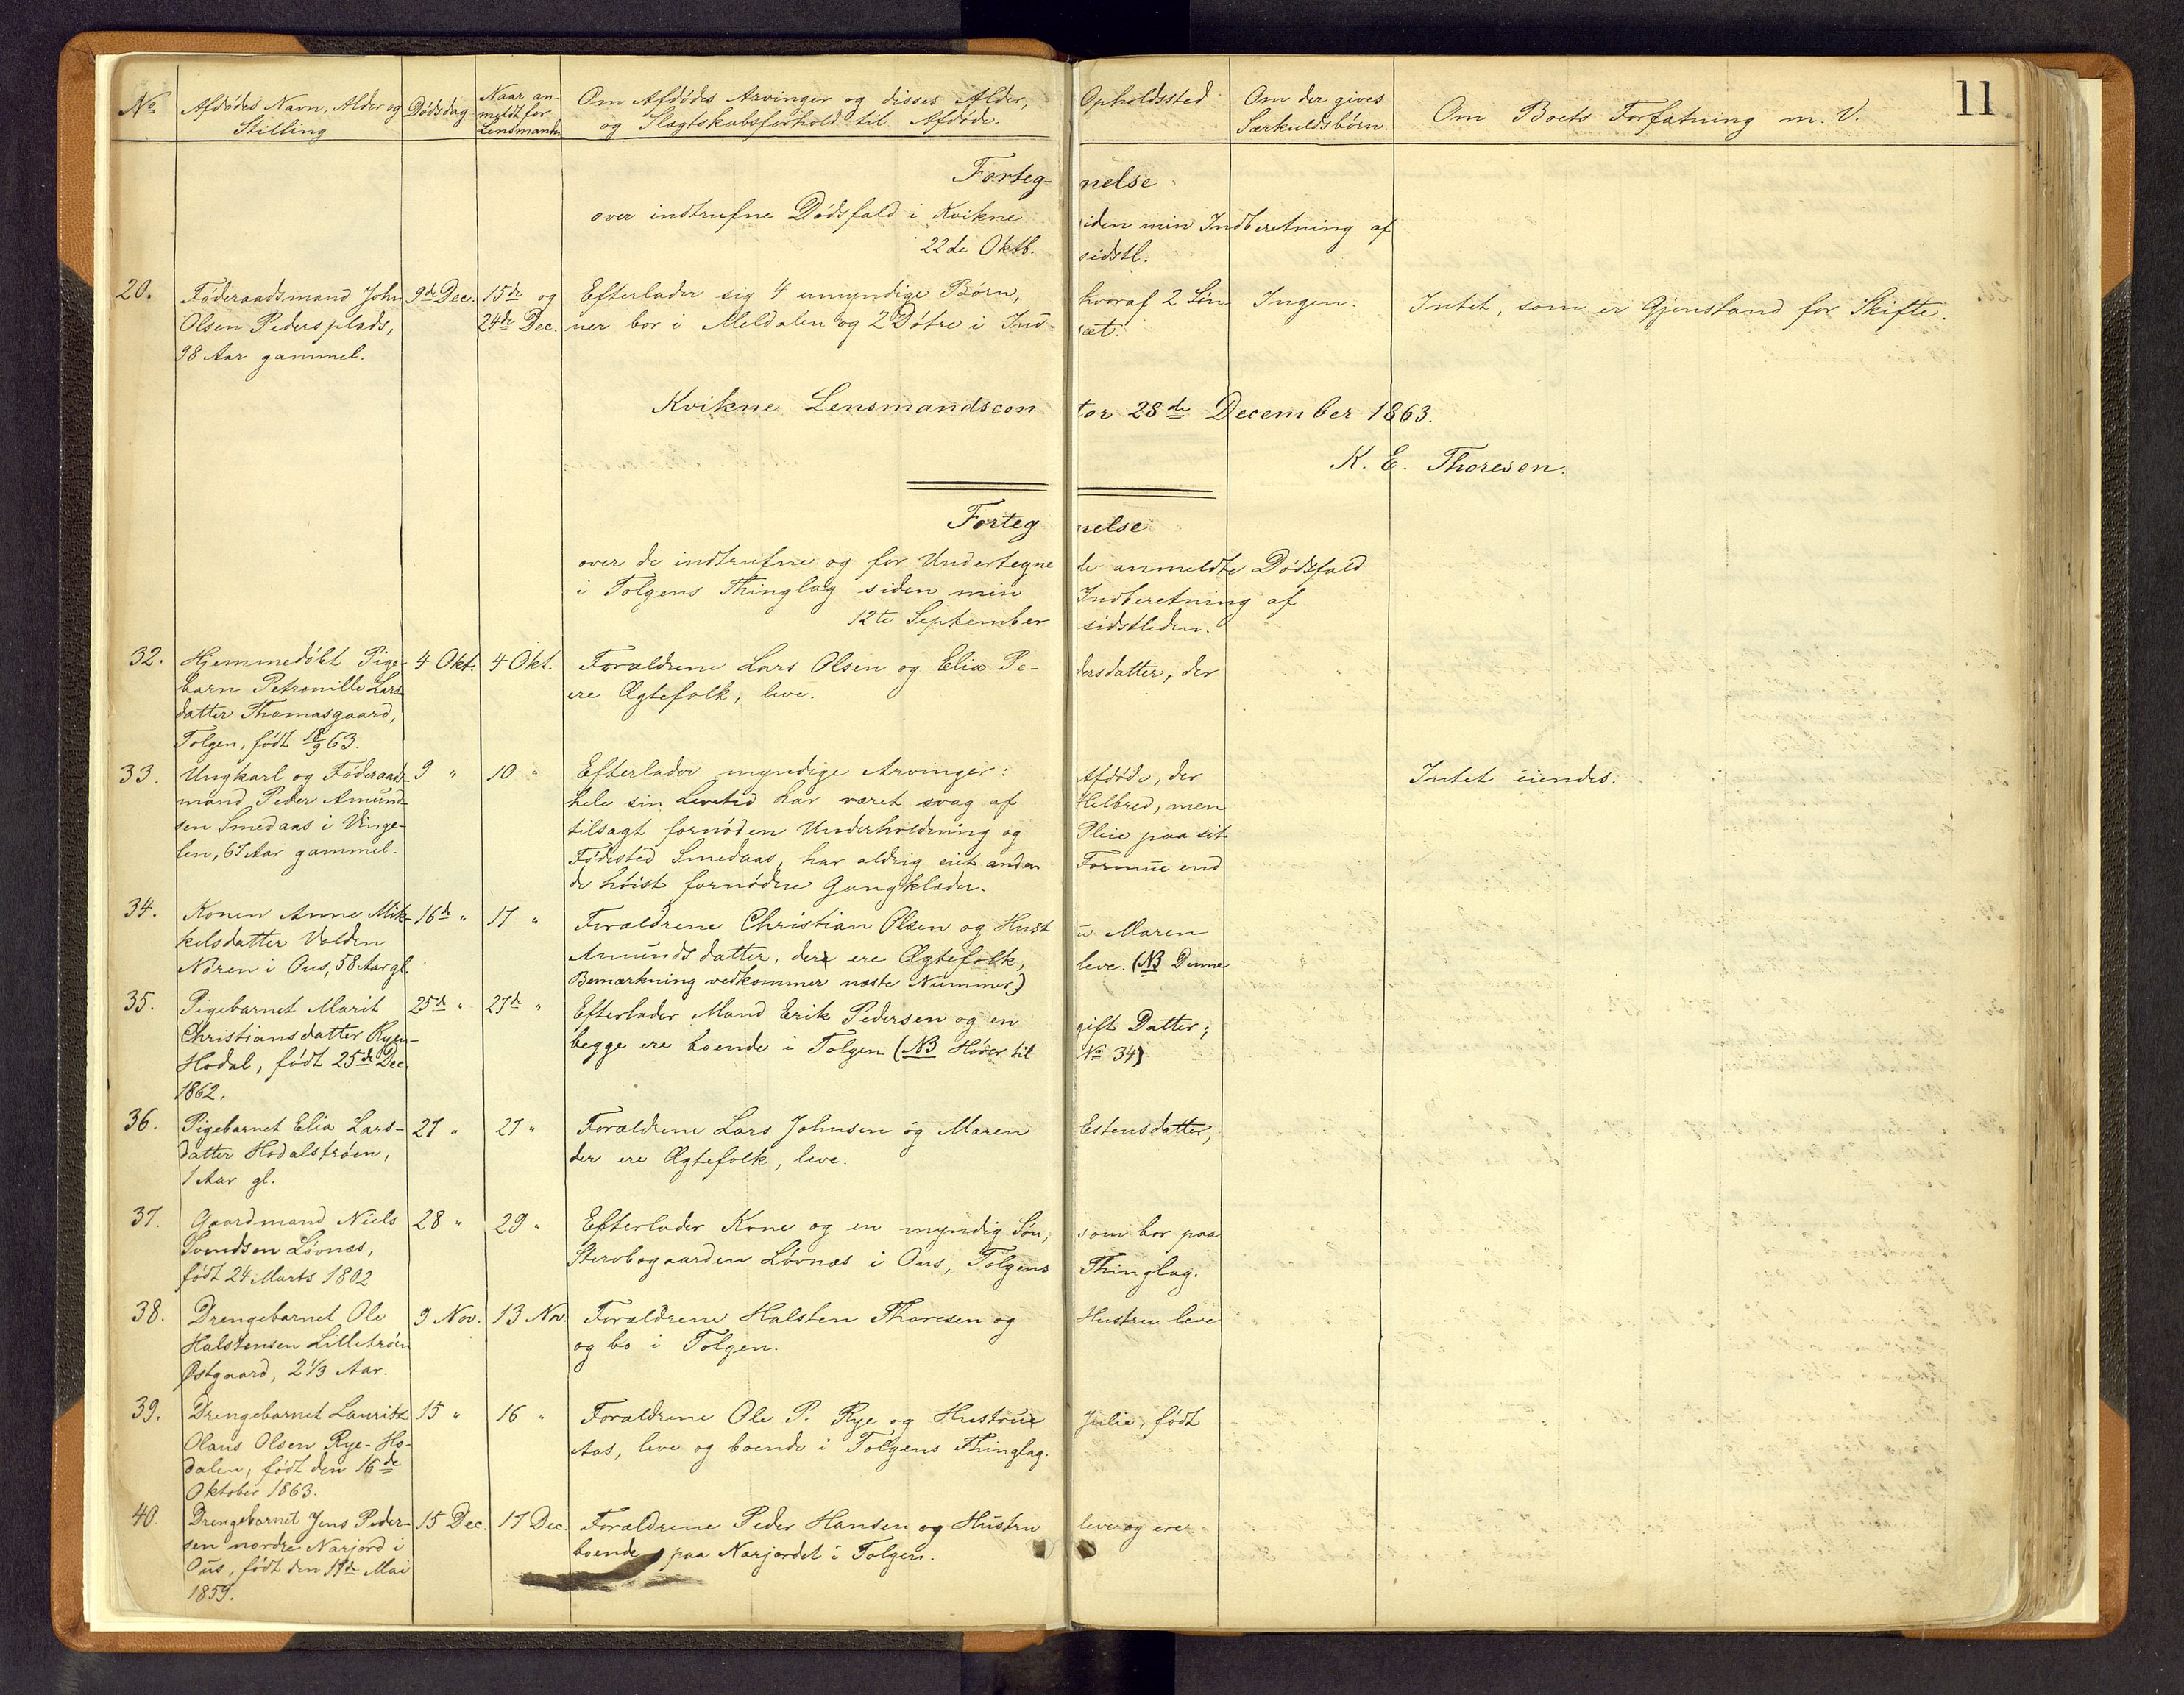 11
No Afdødes Navn, Alder og Stilling Dødsdag Naar anmeldt for Lensmanden Om Afdødes Arvinger og disses Alder, Opholdssted og Slægtskabsforhold til Afdøde. Om der gives Særkuldsbørn. Om Boets Forfatning m. V.
Forteg- nelse
over indtrufne Dødsfald i Kvikne siden min Indberetning af
22de Oktb. sidstl.
20. Føderaadsmand John 9de Dec. 15de og Efterlader sig 4 umyndige Børn, hvoraf 2 Søn Ingen. Intet, som er Gjenstand for Skifte.
Olsen Pedersplads, 24de Dec. ner bor i Meldalen og 2 Døtre i Ind- set.
98 Aar gammel.
Kvikne Lensmandscon tor 28de December 1863.
K. E. Thoresen.
Forteg nelse
over de indtrufne og for Undertegne de anmeldte Dødsfald
i Tolgens Thinglag siden min Indberetning af
12te September sidstleden.
32. Hjemmedøbt Pige- 4 Okt. 4 Okt. Forældrene Lars Olsen og Elia Pe- dersdatter, der
barn Petronille Lars ere Ægtefolk, leve.
datter Thomasgaard,
Tolgen, født 18/9 63.
33. Ungkarl og Føderaads- 9 " 10 " Efterlader myndige Arvinger: Afdøde, der Intet eiendes.
mand Peder Amund- hele sin Levetid har været svag af Helbred, men
sen Smedaas i Vinge- tilsagt fornøden Underholdning og Pleie paa sit
len, 67 Aar gammel. Fødested Smedaas, har aldrig eiet anden Formue end
de høist fornødne Gangklæder.
34. Konen Anne Mik- 16de " 17 " Forældrene Christian Olsen og Hust u Maren
kelsdatter Volden Amundsdatter, der ere Ægtefolk, leve. (NB Denne
Nøren i Ous, 58 Aar gl. Bemærkning vedkommer næste Nummer)
35. Pigebarnet Marit 25de " 27de " Efterlader Mand Erik Pedersen og en gift Datter;
Christiansdatter Ryen- begge ere boende i Tolgen (NB Hører til No 34)
Hodal, født 25de Dec.
1862.
36. Pigebarnet Elia Lars- 27 " 27 " Forældrene Lars Johnsen og Maren Estensdatter,
datter Hodalstrøen, der ere Ægtefolk, leve.
1 Aar gl.
37. Gaardmand Niels 28 " 29 " Efterlader Kone og en myndig Søn, som bor paa
Svendsen Løvnæs, Stervbogaarden Løvnæs i Ous, Tolgens Thinglag.
født 24 Marts 1802
38. Drengebarnet Ole 9 Nov. 13 Nov. Forældrene Halsten Thoresen og Hustru leve
Halstensen Lilletrøen og bo i Tolgen.
Østgaard, 2 1/3 Aar.
39. Drengebarnet Lauritz 15 " 16 " Forældrene Ole P. Rye og Hustrue Julie, født
Olaus Olsen Rye-Ho- Aas, leve og boende i Tolgens Thinglag.
dalen, født den 16de
Oktober 1863.
40. Drengebarnet Jens Peder- 15 Dec. 17 Dec. Forældrene Peder Hansen og Hustru leve og ere
sen nordre Narjord i boende paa Narjordet i Tolgen.
Ous, født den 11de Mai
1859.